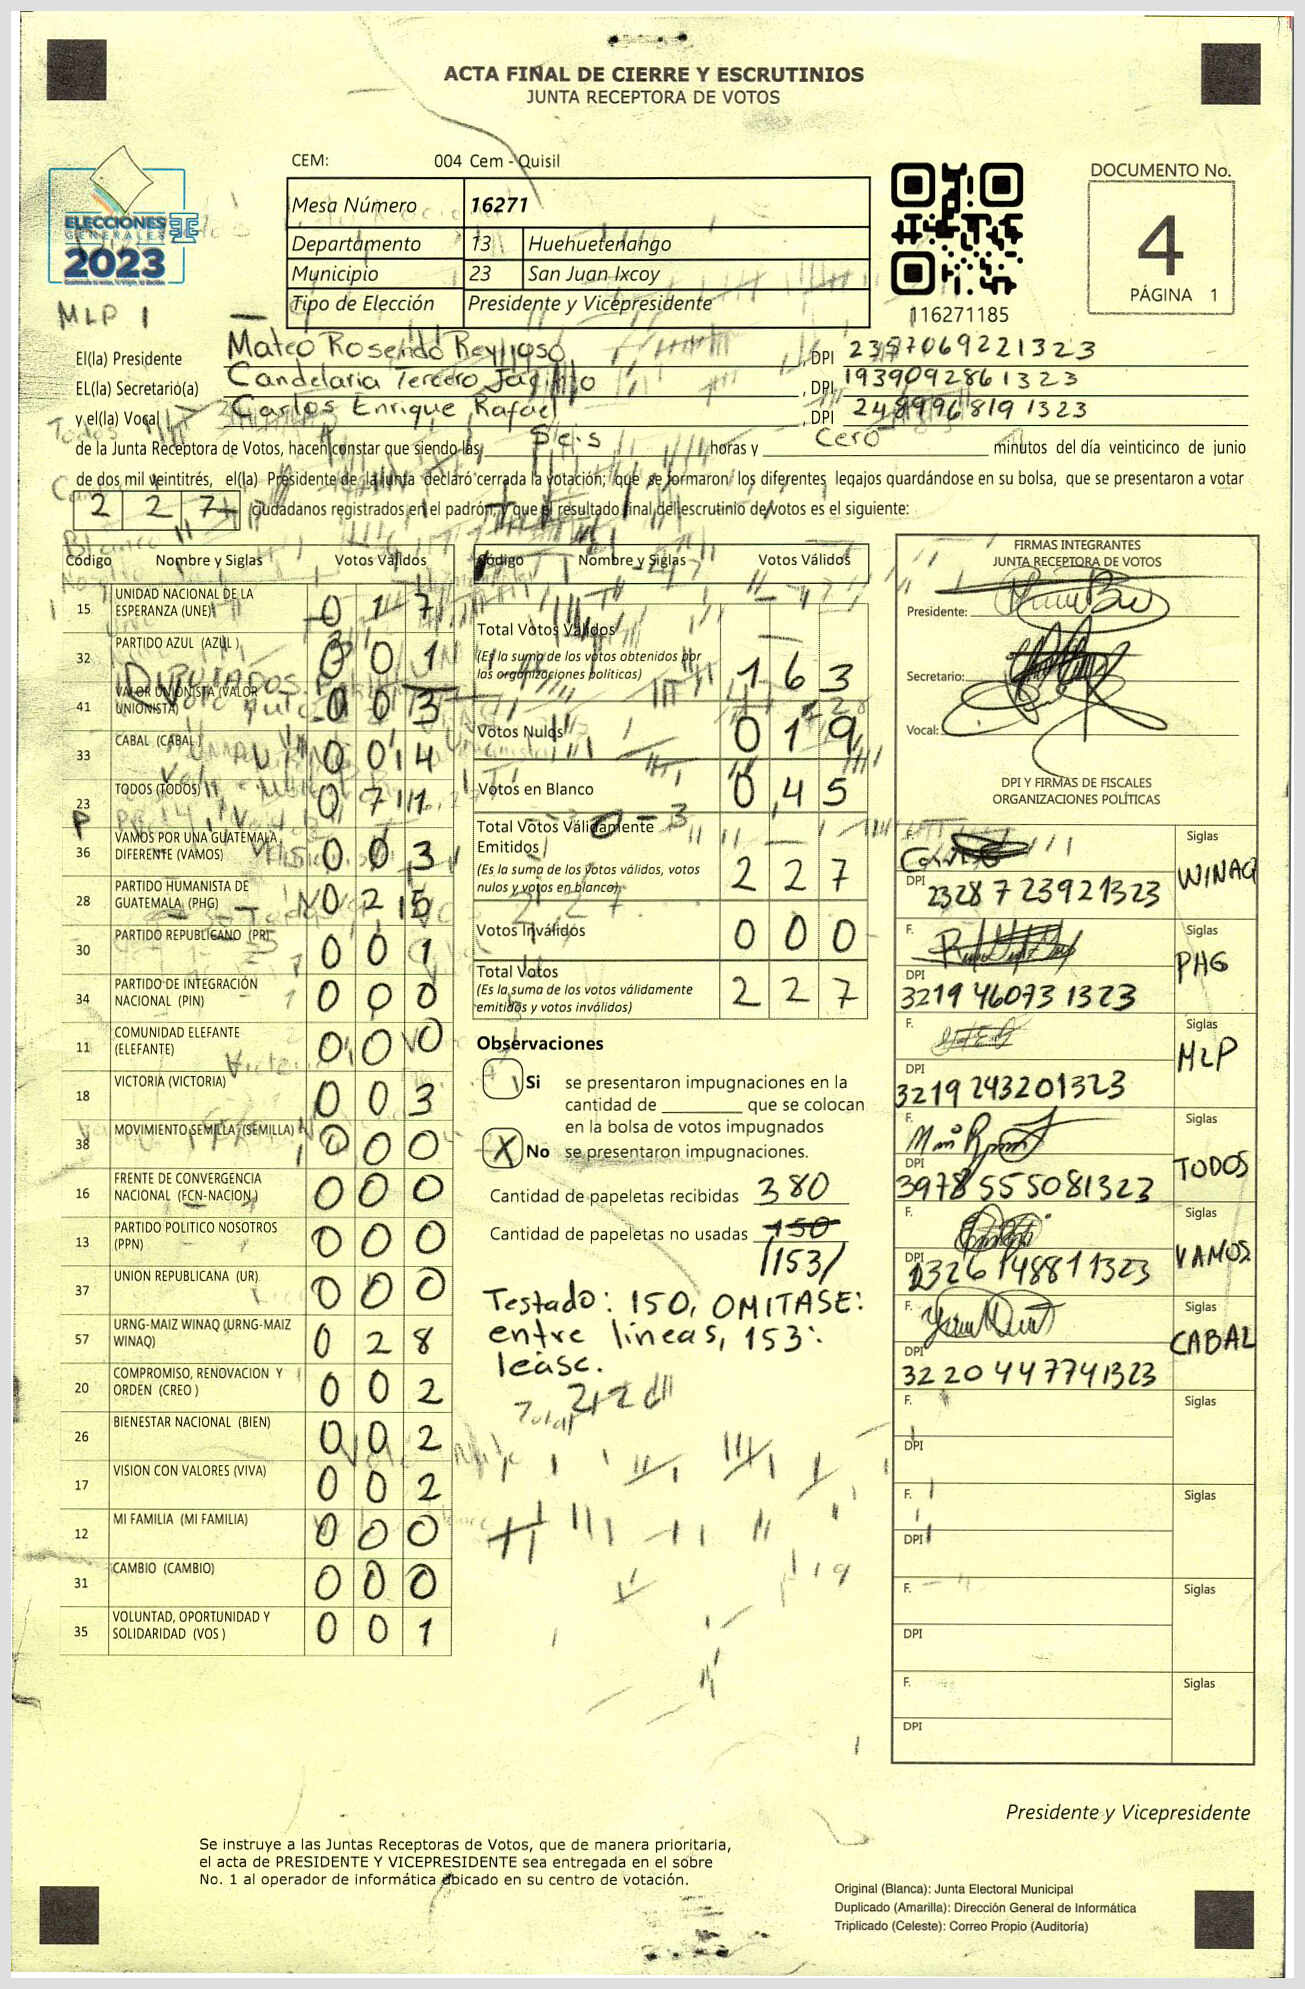 ACTA FINAL DE CIERRE Y ESCRUTINIOS
JUNTA RECEPTORA DE VOTOS
CEM: 004 Cem - Quisil
Mesa Número 16271
Departamento 13 Huehuetenango
Municipio 23 San Juan Ixcoy
Tipo de Elección Presidente y Vicepresidente
ELECCIONES
GENERALES
2023
116271185
DOCUMENTO No.
4
PÁGINA 1
MLP 1
El(la) Presidente Mateo Rosendo Reynoso, DPI 2357069221323
EL(la) Secretario(a) Candelaria Tercero Jacinto, DPI 1939092861323
y el(la) Vocal Carlos Enrique Rafael, DPI 2489968191323
de la Junta Receptora de Votos, hacen constar que siendo las Seis horas y Cero minutos del día veinticinco de junio
de dos mil veintitrés, el(la) Presidente de la Junta declaró cerrada la votación; que se formaron los diferentes legajos quardándose en su bolsa, que se presentaron a votar
2 2 7 ciudadanos registrados en el padrón, y que el resultado final del escrutinio de votos es el siguiente:
Código Nombre y Siglas Votos Válidos
15 UNIDAD NACIONAL DE LA ESPERANZA (UNE) 0 1 7
32 PARTIDO AZUL (AZUL) 0 0 1
41 VALOR UNIONISTA (VALOR UNIONISTA) 0 0 3
33 CABAL (CABAL) 0 0 4
23 TODOS (TODOS) 0 7 1
36 VAMOS POR UNA GUATEMALA DIFERENTE (VAMOS) 0 0 3
28 PARTIDO HUMANISTA DE GUATEMALA (PHG) 0 2 5
30 PARTIDO REPUBLICANO (PR) 0 0 1
34 PARTIDO DE INTEGRACIÓN NACIONAL (PIN) 0 0 0
11 COMUNIDAD ELEFANTE (ELEFANTE) 0 0 0
18 VICTORIA (VICTORIA) 0 0 3
38 MOVIMIENTO SEMILLA (SEMILLA) 0 0 0
16 FRENTE DE CONVERGENCIA NACIONAL (FCN-NACION) 0 0 0
13 PARTIDO POLITICO NOSOTROS (PPN) 0 0 0
37 UNION REPUBLICANA (UR) 0 0 0
57 URNG-MAIZ WINAQ (URNG-MAIZ WINAQ) 0 2 8
20 COMPROMISO, RENOVACION Y ORDEN (CREO) 0 0 2
26 BIENESTAR NACIONAL (BIEN) 0 0 2
17 VISION CON VALORES (VIVA) 0 0 2
12 MI FAMILIA (MI FAMILIA) 0 0 0
31 CAMBIO (CAMBIO) 0 0 0
35 VOLUNTAD, OPORTUNIDAD Y SOLIDARIDAD (VOS) 0 0 1
Código Nombre y Siglas Votos Válidos
Total Votos Válidos
(Es la suma de los votos obtenidos por
las organizaciones políticas) 1 6 3
Votos Nulos 0 1 9
Votos en Blanco 0 4 5
Total Votos Válidamente
Emitidos
(Es la suma de los votos válidos, votos
nulos y votos en blanco) 2 2 7
Votos Inválidos 0 0 0
Total Votos
(Es la suma de los votos válidamente
emitidos y votos inválidos) 2 2 7
Observaciones
Si se presentaron impugnaciones en la
cantidad de ________ que se colocan
en la bolsa de votos impugnados
X No se presentaron impugnaciones.
Cantidad de papeletas recibidas 380
Cantidad de papeletas no usadas 150
/153/
Testado: 150, OMITASE:
entre lineas, 153:
leáse.
Total
FIRMAS INTEGRANTES
JUNTA RECEPTORA DE VOTOS
Presidente:
Secretario:
Vocal:
DPI Y FIRMAS DE FISCALES
ORGANIZACIONES POLÍTICAS
F. Siglas WINAQ
DPI 2328723921323
F. Siglas PHG
DPI 3219460731323
F. Siglas MLP
DPI 3219243201323
F. Siglas TODOS
DPI 3978555081323
F. Siglas VAMOS
DPI 2326148811323
F. Siglas CABAL
DPI 3220447741323
F. Siglas
DPI
F. Siglas
DPI
F. Siglas
DPI
F. Siglas
DPI
Presidente y Vicepresidente
Se instruye a las Juntas Receptoras de Votos, que de manera prioritaria,
el acta de PRESIDENTE Y VICEPRESIDENTE sea entregada en el sobre
No. 1 al operador de informática ubicado en su centro de votación.
Original (Blanca): Junta Electoral Municipal
Duplicado (Amarilla): Dirección General de Informática
Triplicado (Celeste): Correo Propio (Auditoría)